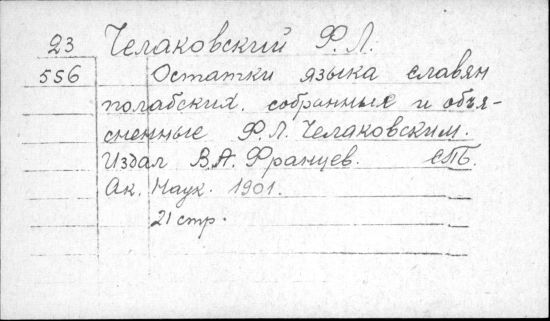 23 Челаковский Ф.Л.
556 Остатки языка славян
полабских, собранные и объя-
сненные Ф.Л. Челаковским.
Издал В.А. Францев. СПб.
Ак. Наук. 1901.
21 стр.